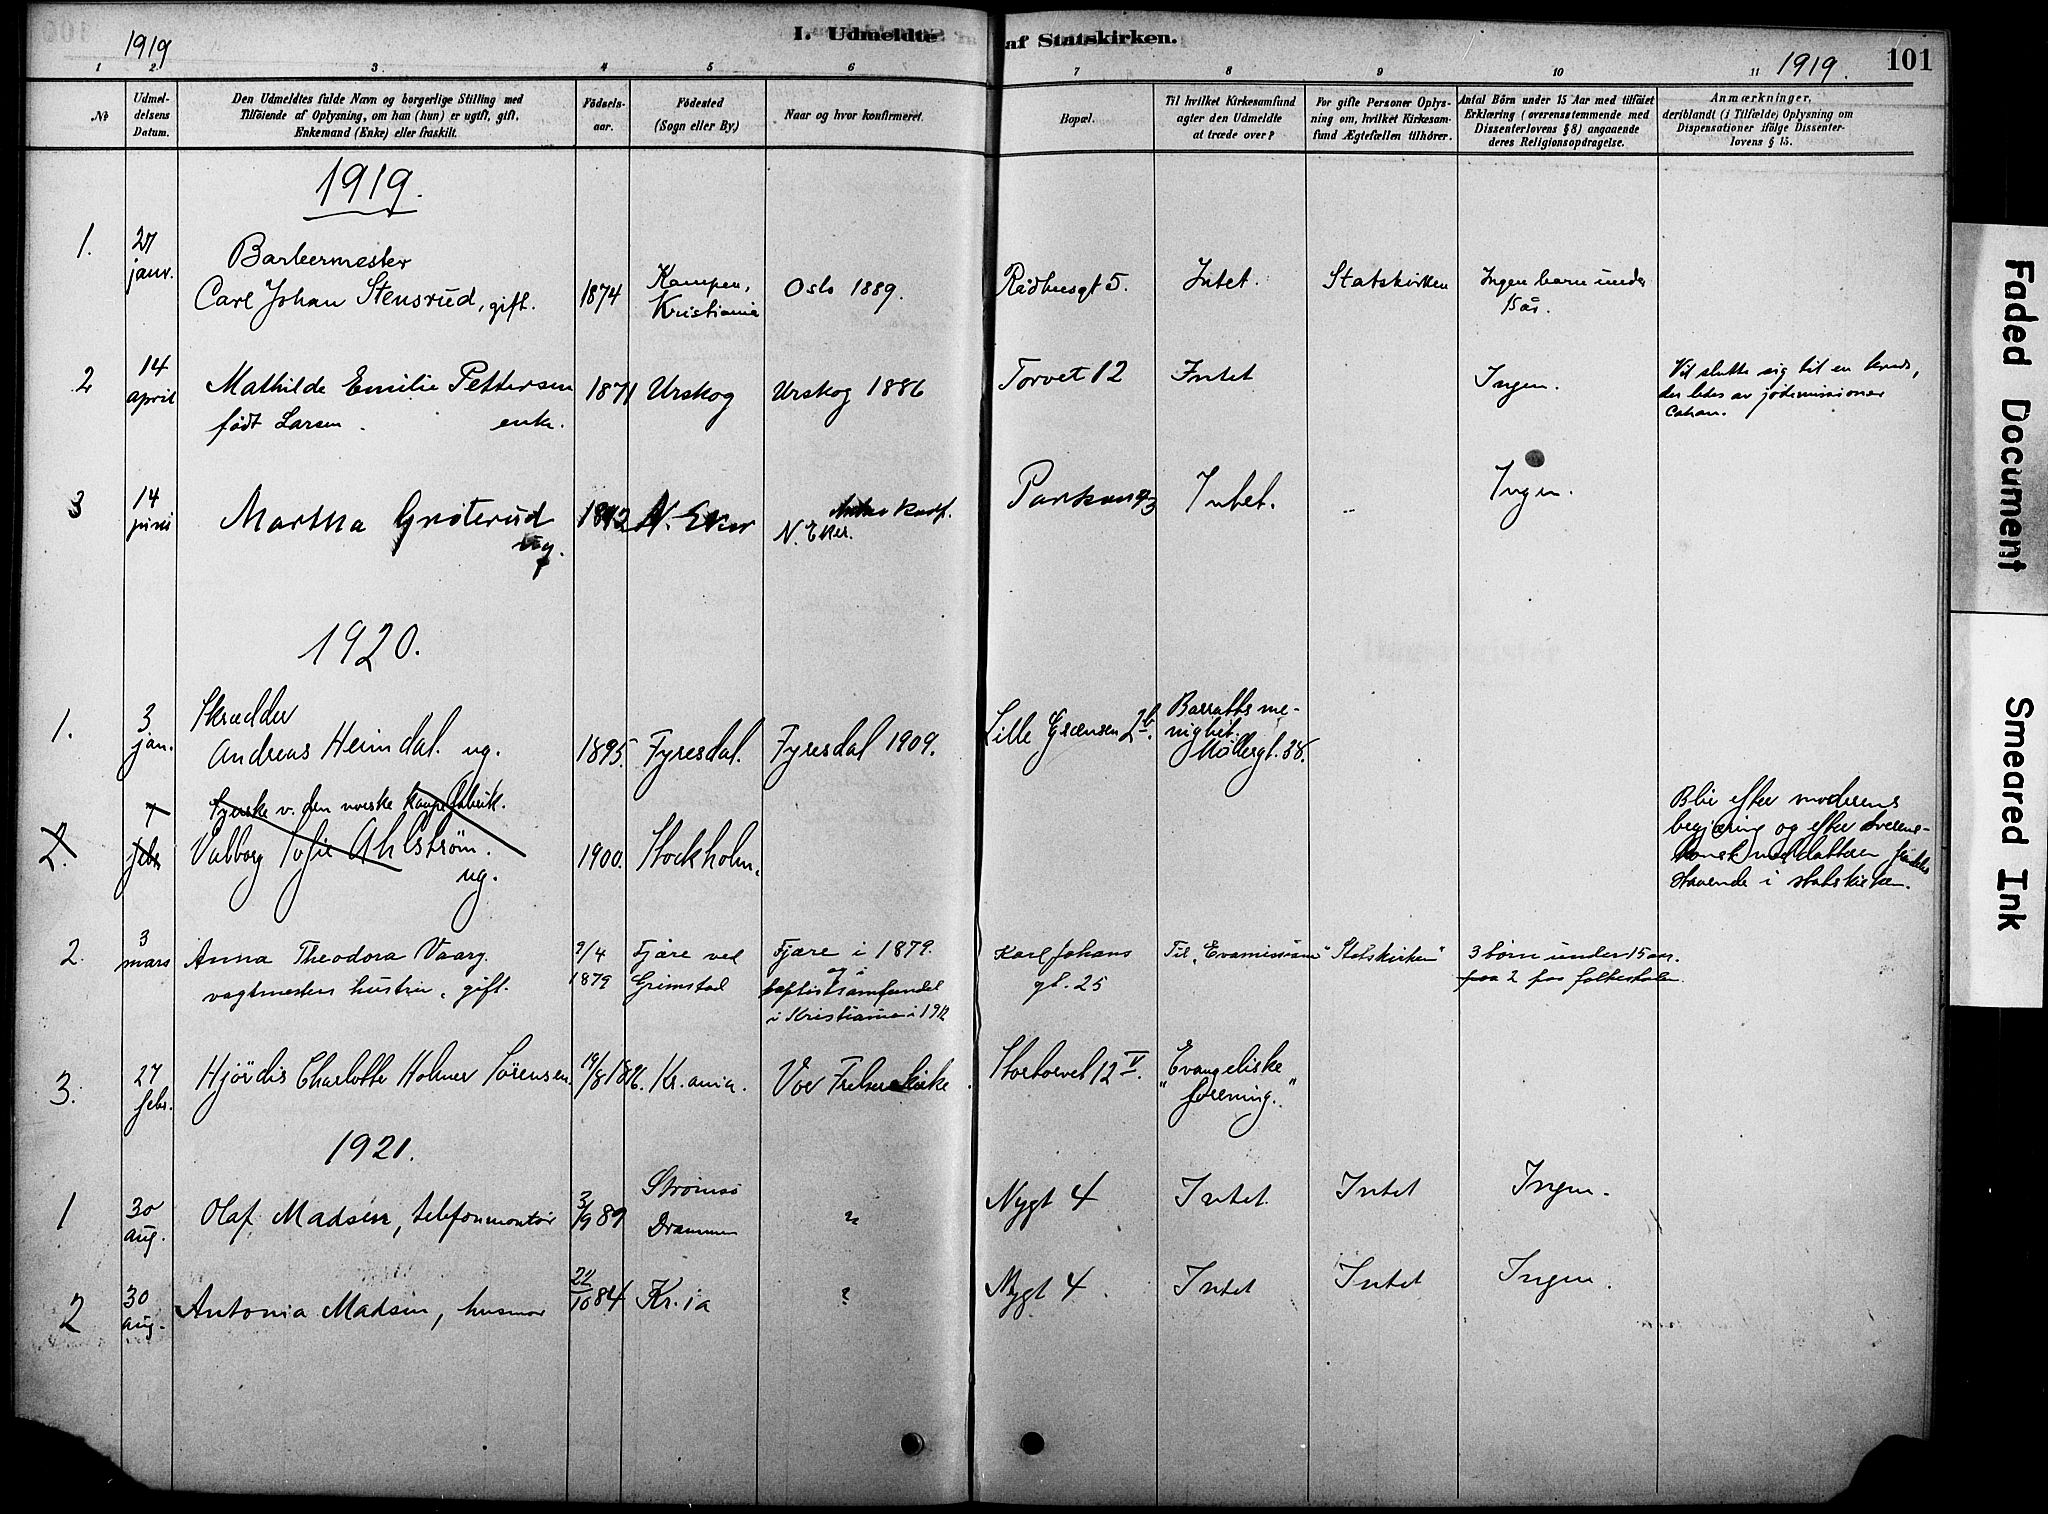 1919
I. Udmeldte af Statskirken.
1919.
101
1 2. 3. 4 5 6 7 8 9 10 11
No
Udmeldelsens Datum.
Den Udmeldtes fulde Navn og borgerlige Stilling med
Tilföiende af Oplysning, om han (hun) er ugift, gift,
Enkemand (Enke) eller fraskilt.
Födselsaar.
Födested
(Sogn eller By.)
Naar og hvor konfirmeret.
Bopæl.
Til hvilket Kirkesamfund
agter den Udmeldte
at træde over?
For gifte Personer Oplysning om, hvilket Kirkesamfund Ægtefællen tilhörer.
Antal Börn under 15 Aar med tilföiet
Erklæring (overensstemmende med
Dissenterlovens § 8) angaaende
deres Religionsopdragelse.
Anmærkninger,
deriblandt (i Tilfælde) Oplysning om
Dispensationer ifölge Dissenterlovens § 15.
1919.
1. 27 janr. Barbermester
Carl Johan Stensrud, gift. 1874 Kampen, Kristiania Oslo 1889. Rådhusgt 5. Intet. Statskirken Ingen barn under 15 år.
2 14 april Mathilde Emilie Pettersen
født Larsen. enke. 1871 Urskog Urskog 1886 Torvet 12 Intet Ingen. Vil slutte sig til en kreds,
der ledes av jødemissionær
Cahan.
3 14 juni Martha Grøterud
ug. N. Eker N. Eker. Intet. Ingen.
1920.
1. 3 jan. Skrædder
Andreas Heimdal. ug. 1895. Fyresdal. Fyresdal 1909. Lille Grænsen 2b. Barratts menighet. Møllergt. 38.
2. febr Syerske v. den norske
Valborg Sofie Ahlstrøm.
ug. 1900. Stockholm. Blir efter moderens
begjæring og efter
datteren
staaende i statskirken.
2. 3 mars Anna Theodora Vaag.
vagtmesters hustru, gift. 9/4 1879 Fjære ved Grimstad Fjære i 1879.
og i
baptistsamfundet
i Kristiania i 1912 Karl Johans gt. 25 Til "Evamissionen" Statskirken" 3 børn under 15 aar.
paa 2 paa folkeskolen
3. 27 febr. Hjördis Charlotte Holmer Sörensen. 19/8 1896. Kr.ania. Vor Frelsers kirke Stortorvet 12 V. "Evangeliske forening."
1921.
1 30 aug. Olaf Madsen, telefonmontør 3/9 89 Strømsø Drammen ? Nygt 4 Intet. Intet Ingen.
2 30 aug. Antonia Madsen, husmor 22/10 84 Kr.ia ? Nygt 4. Intet Intet Ingen.
Faded Document
Smeared Ink